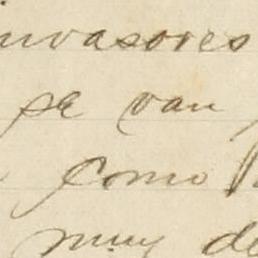 invasores
se van
como
muy de